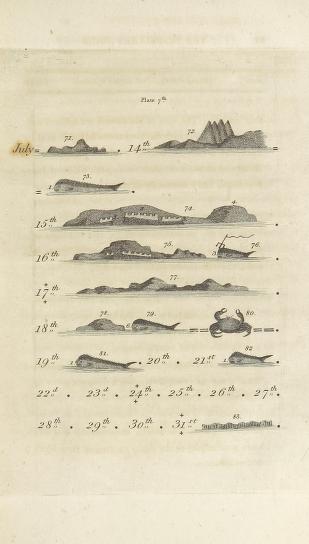 Plate 7th
July = 71. . 14th 72. =
= 1. 73. .
15th 74. 4. .
16th 75. 3. 1. 76. .
+ 17th + 77. .
18th 78. 6. 79. = 80. = .
19th 1. 81. . 20th . 21st 1. 82. .
22d . 23d . + 24th + . 25th . 26th . 27th .
28th . 29th . 30th . + 31st + 83. .